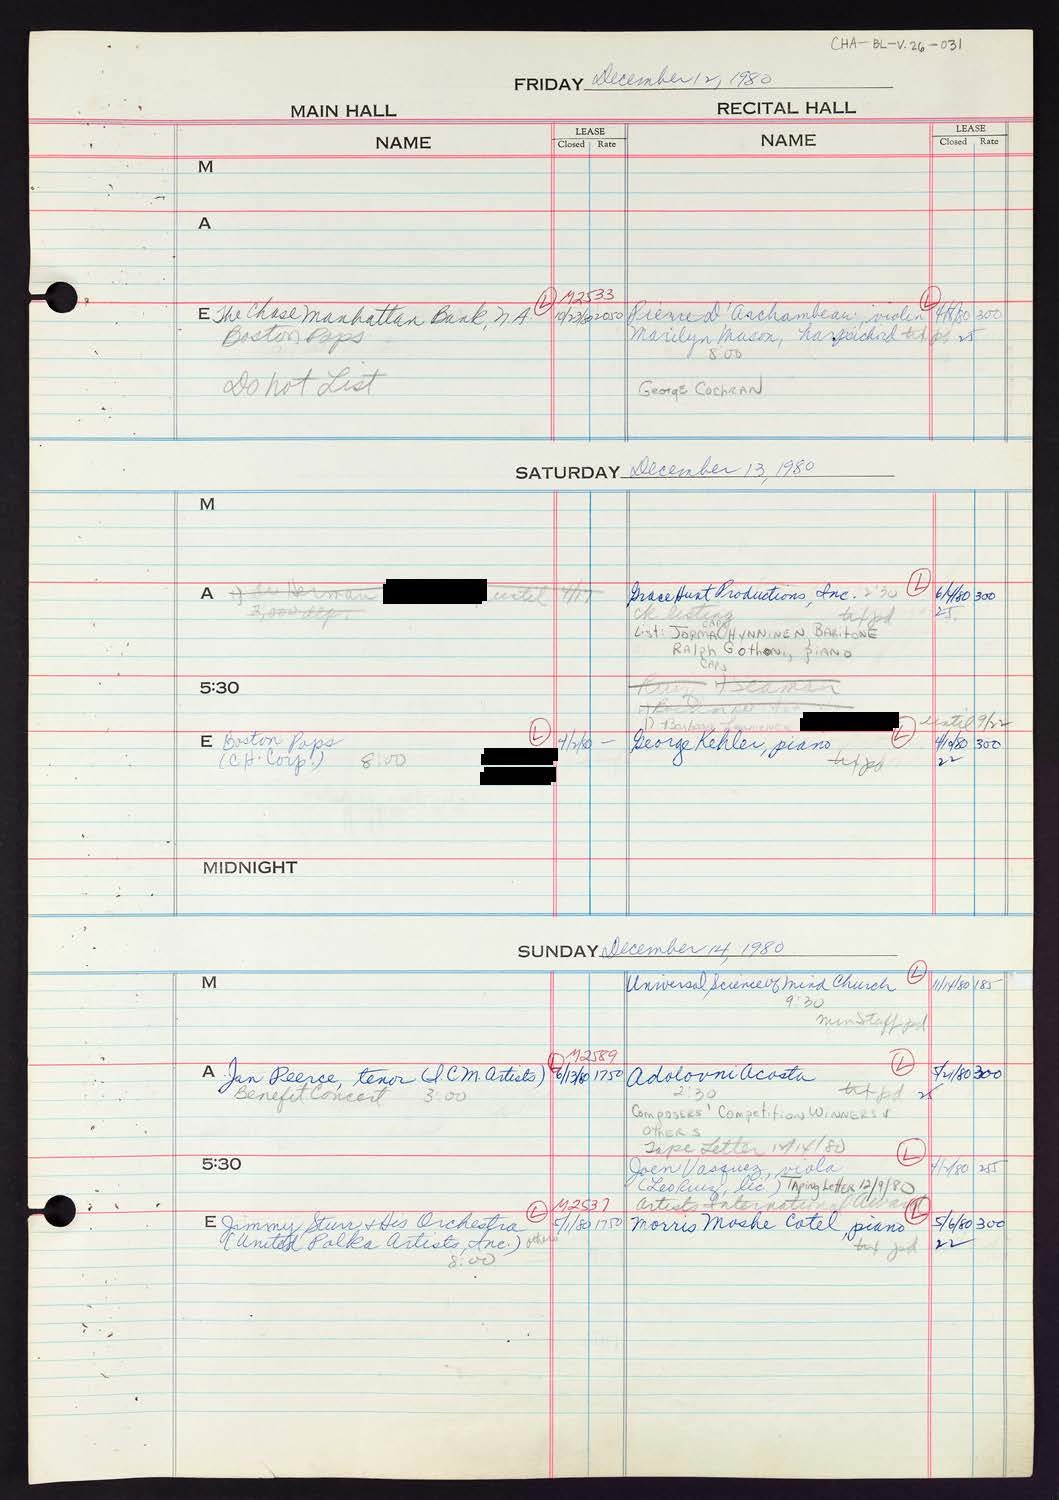 CHA-BL-V.26-031
FRIDAY December 12, 1980
MAIN HALL RECITAL HALL
NAME LEASE Closed Rate NAME LEASE Closed Rate
M
A
M2533
E The Chase Manhattan Bank, NA L 10/23/80 2050 Pierre D'Archambeau, violin L 300
Boston Pops Marilyn Mason, harpsichord txt pd 25
8:00
Do not List George Cochran
SATURDAY December 13, 1980
M
A Herman until Grace Hunt Productions, Inc. 2:30 L 6/4/80 300
3,000 dep. ck listing txt pd 25.
CAPS
List: Jorma Hynninen, Baritone
Ralph Gothoni, piano
CAPS
5:30 Seaman
1) Barbara until 9/22
E Boston Pops L 4/2/80 — George Kehler, piano L 4/9/80 300
(C.H. Corp.) 8:00 txt pd 22
MIDNIGHT
SUNDAY December 14, 1980
M Universal Science of Mind Church L 11/14/80 185
9:30
min Staff pd
M2589
A Jan Peerce, tenor (I.C.M. Artists) L 6/13/80 1750 Adolovni Acosta L 300
Benefit Concert 3:00 2:30 txt pd 25
Composers' Competition Winners &
others
Tape Letter 12/14/80
5:30 Joen Vasquez, viola L 255
(Leo Ruiz, lic.) Taping Letter 12/9/80
M2537 Artists International
E Jimmy Sturr & His Orchestra L 5/1/80 1750 Morris Moshe Cotel, piano L 5/6/80 300
(United Polka Artists, Inc.) others txt pd 22
8:00